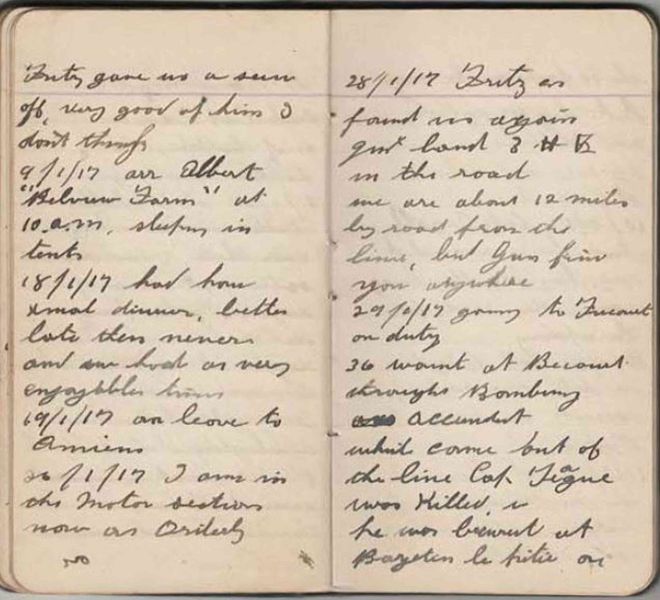 Fritz gave us a send
off, very good of him I
dont think
9/1/17 arr Albert
"Belview Farm" at
10.a.m. sleeping in
tents
18/1/17 had how
xmas dinner, better
late then never
and we had a very
enjoybble time
19/1/17 on leave to
Amiens
26/1/17 I am in
the Motor section
now as Orderly
28/1/17 Fritz as
found us again
just land 3 H
in the road
we are about 12 miles
by road from the
line, but Guns find
you anywhere
29/1/17 going to Fricourt
on duty
36 wount at Becourt
through Bombing
accundent
while come out of
the line Cap Teague
was Killed,
he was beuried at
Bazeten le petite on